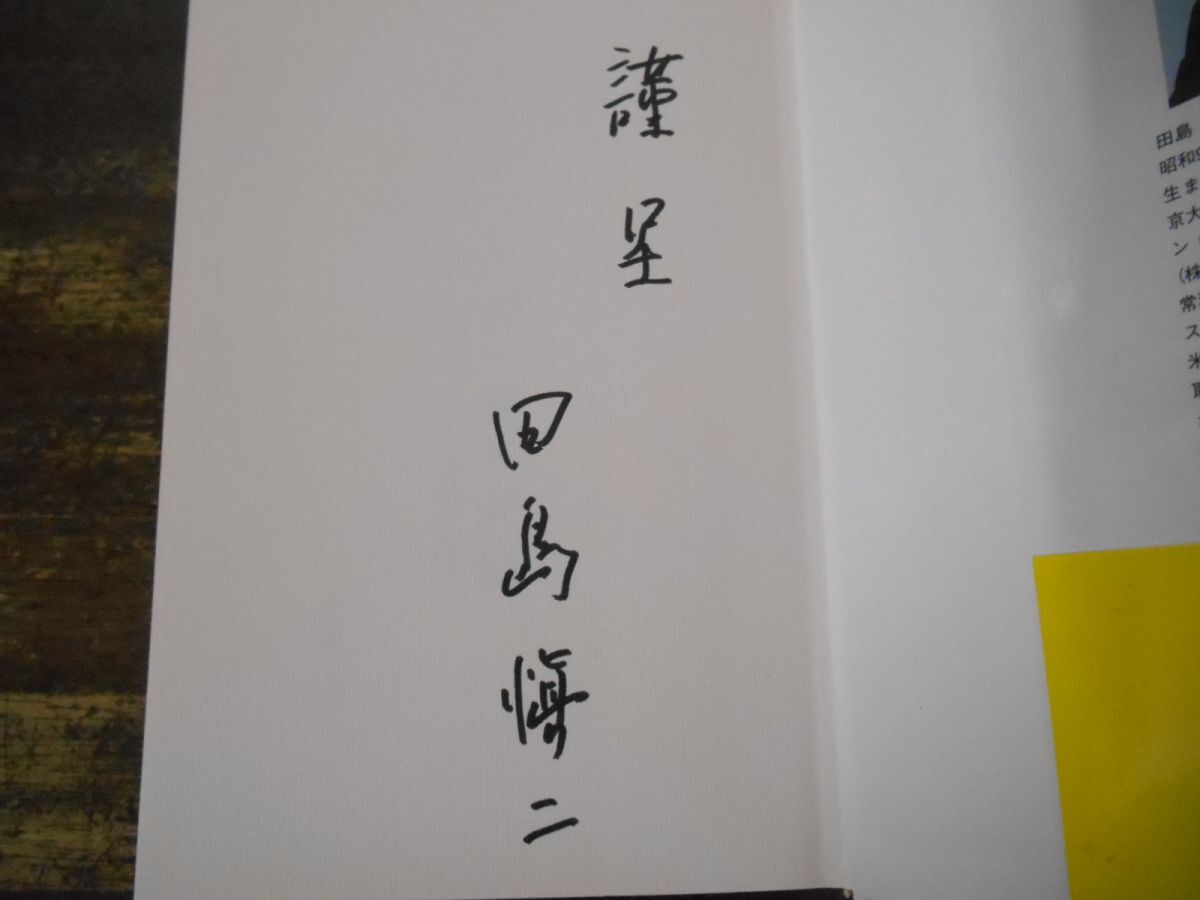 謹呈
田島慎二
田島
昭和9
生ま
京大
ン
(株
常
ス
米